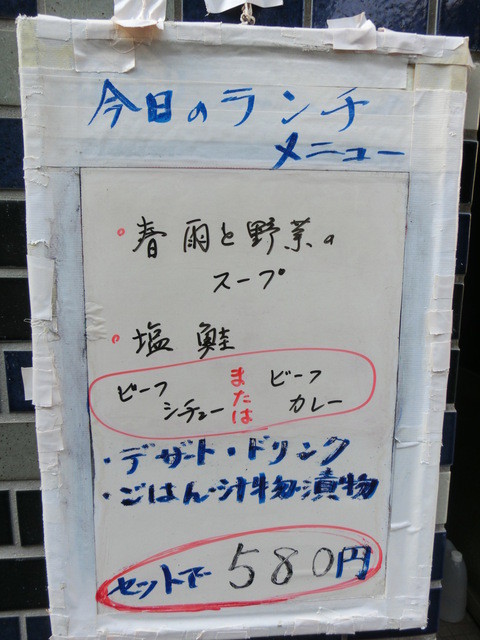 今日のランチ
メニュー
。春雨と野菜の
スープ
。塩鮭
ビーフ
シチュー
または
ビーフ
カレー
・デザート・ドリンク
・ごはん・汁物・漬物
セットで580円